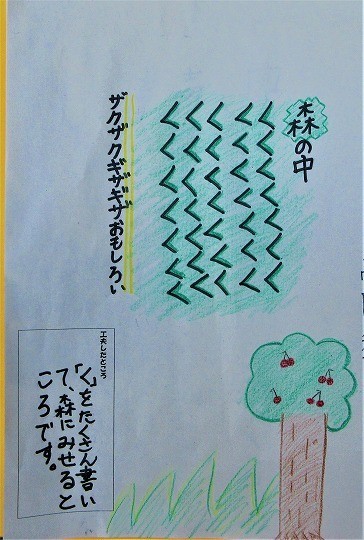 森の中
くくくくくくく
くくくくくくく
くくくくくくく
くくくくくくく
くくくくくくく
ザクザクギザギザおもしろい
工夫したところ
「く」をたくさん書い
て、森にみせると
ころです。